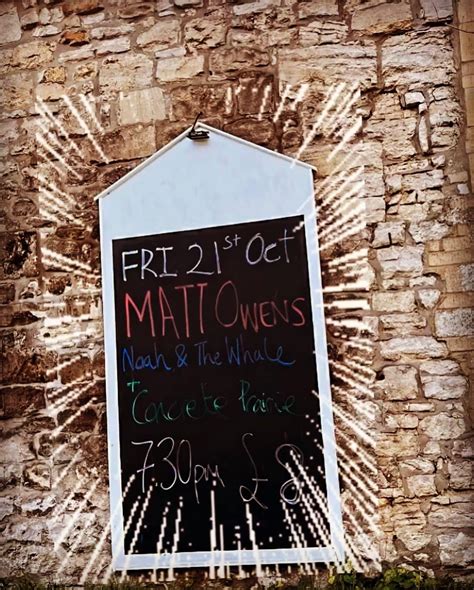 FRI 21st Oct
MATT OWENS
Noah & The Whale
+ Concrete Prairie
7.30pm £8